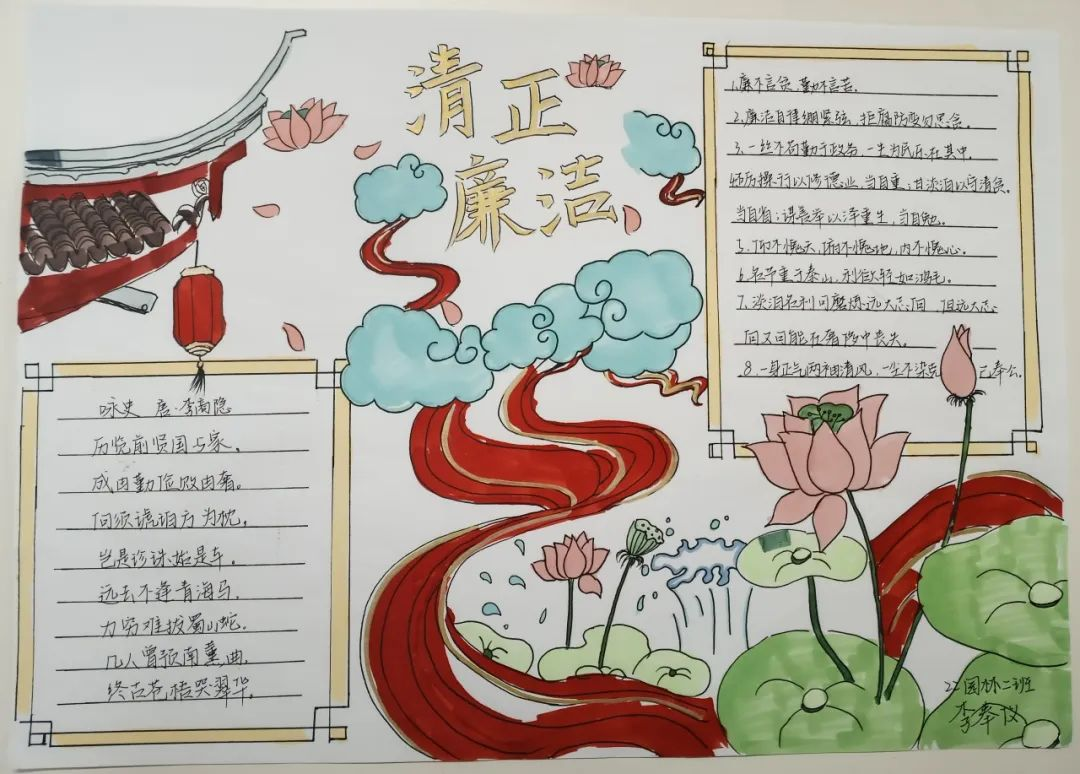 清正
廉洁
咏史 唐·李商隐
历览前贤国与家,
成由勤俭败由奢。
何须琥珀方为枕,
岂是珍珠始是车。
远去不逢青海马,
力穷难拔蜀山蛇。
几人曾预南薰曲,
终古苍梧哭翠华。
1.廉不言贫,勤不言苦。
2.廉洁自律绷紧弦,拒腐防变勿思贪。
3.一丝不苟勤于政务,一生为民乐在其中。
4.砥厉操行以修德业,当自重;甘淡泊以守清贫。
当自省;谋善举以泽重生,当自勉。
5.仰不愧天,俯不愧地,内不愧心。
6.名节重于泰山,利欲轻如鸿毛。
7.淡泊名利可磨砺远大志向,但远大志
向又可能在奢中丧失。
8.一身正气两袖清风,一尘不染克己奉公。
22园林二班
李奉仪